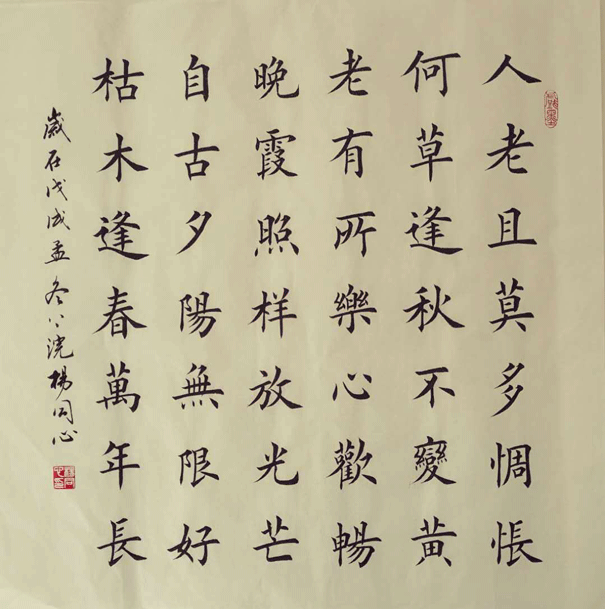 人老且莫多惆悵
何草逢秋不變黄
老有所樂心歡暢
晚霞照样放光芒
自古夕陽無限好
枯木逢春萬年長
歲在戊戌孟冬
楊同心